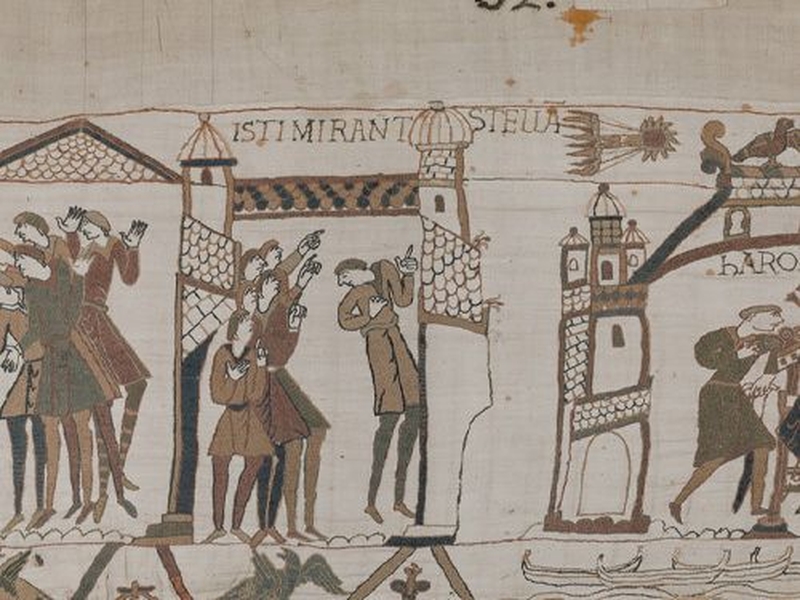 32.
ISTI MIRANT STELLA
HARO